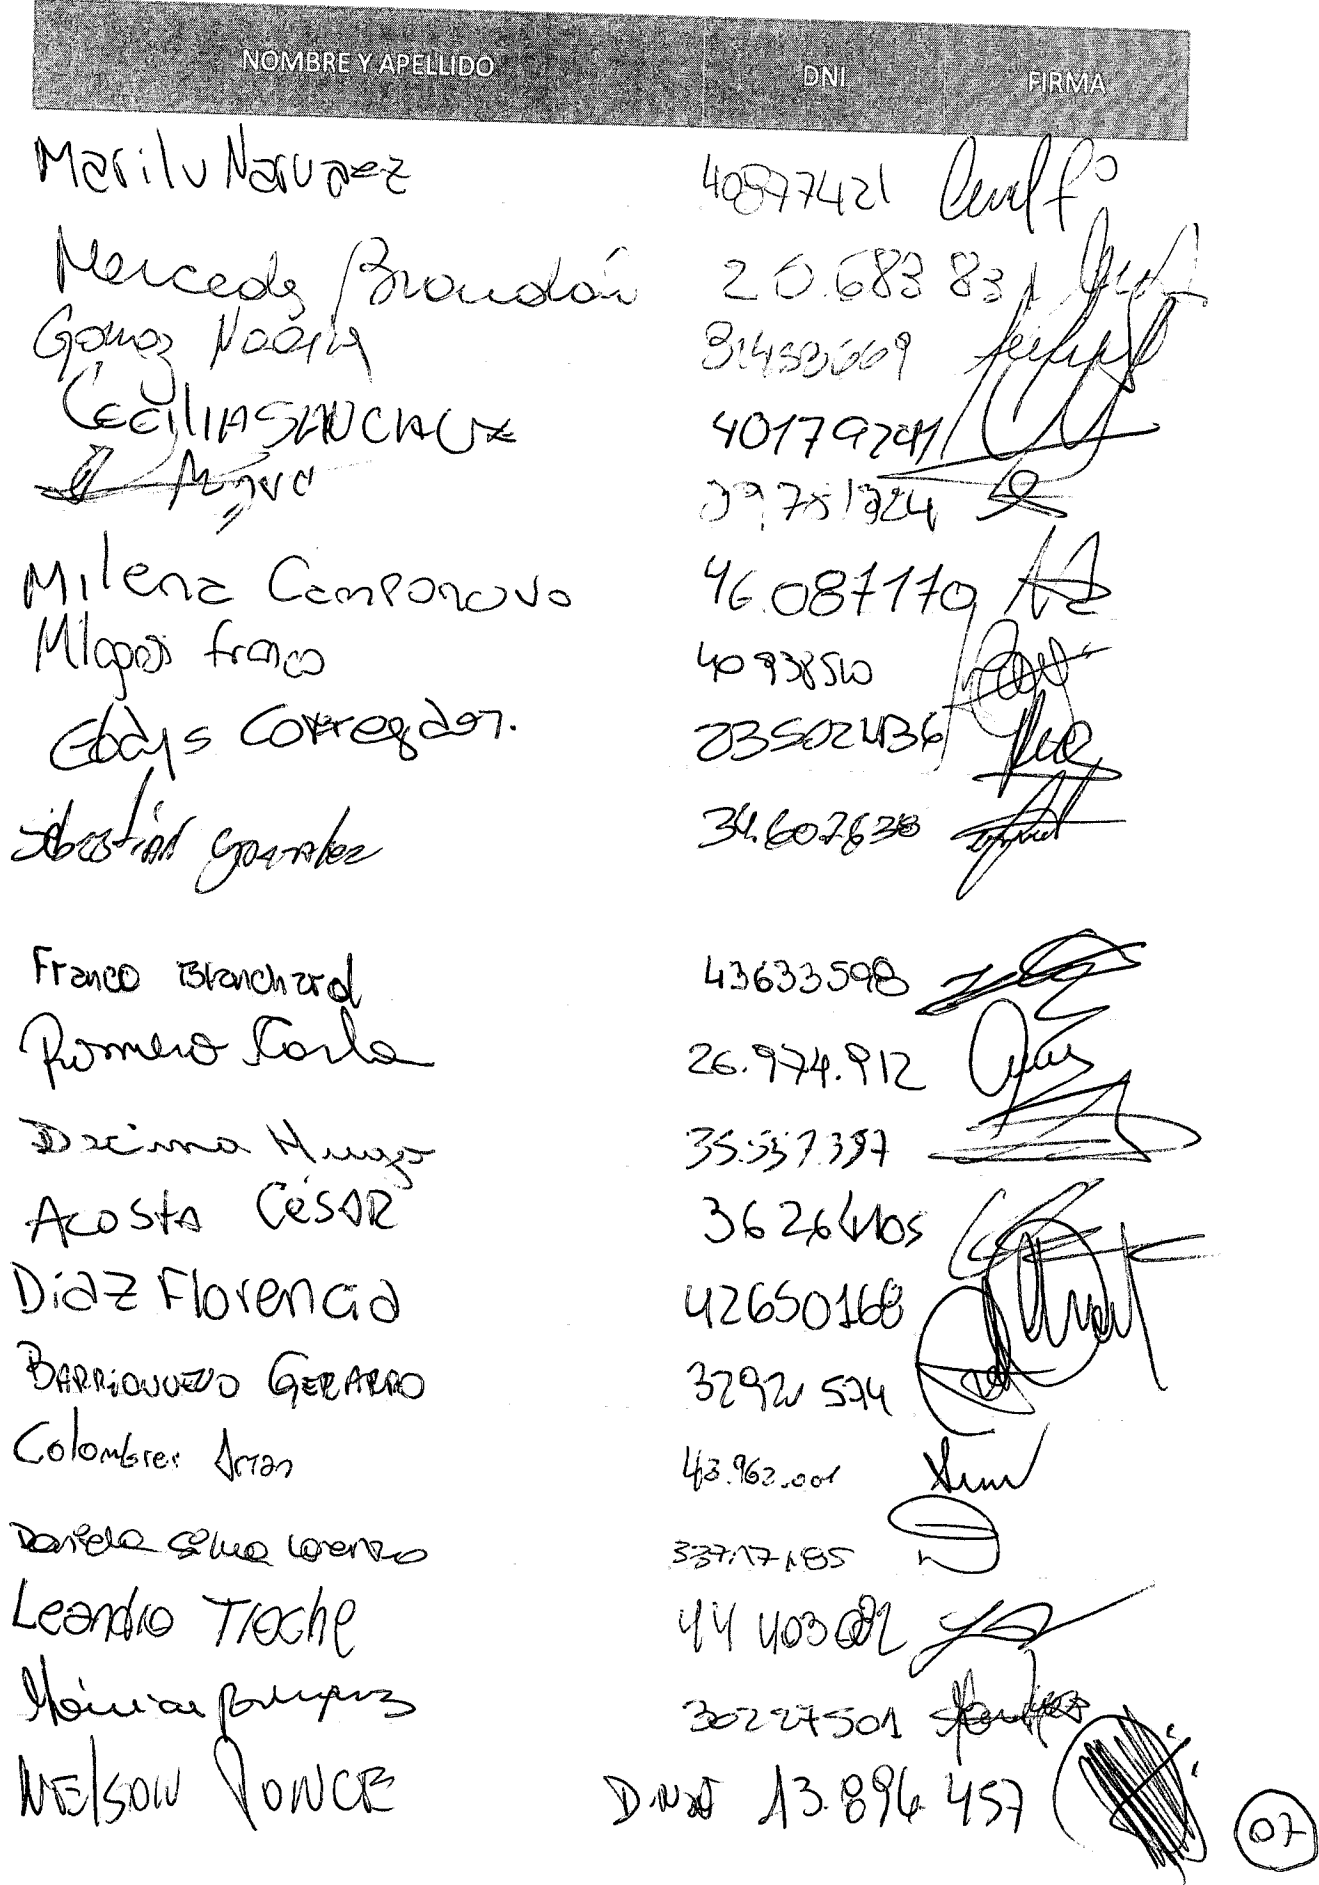 NOMBRE Y APELLIDO DNI FIRMA
Marilu Narvaez 40877421
Mercedes Brandán 20.683 831
Gomez Noelia 31453669
CECILIA SANCHEZ 40179241
39,751324
Milena Camponovo 46.087170
Milagros franco 40938510
Gladys Corregidor. 23502436
Sebastián Gonzalez 34.607638
Franco Blanchard 43633598
Romero Carla 26.974.912
Decima Hugo 35.557.397
ACOSTA CÉSAR 36264105
Diaz Florencia 42650168
BARRIONUEVO GERARDO 32921574
Colombres Arian 43.962.001
Daniela Silva Lorenzo 33717185
Leandro Troche 44 403 082
Mónica 30227501
NELSON PONCE DNI 13.896 457
07